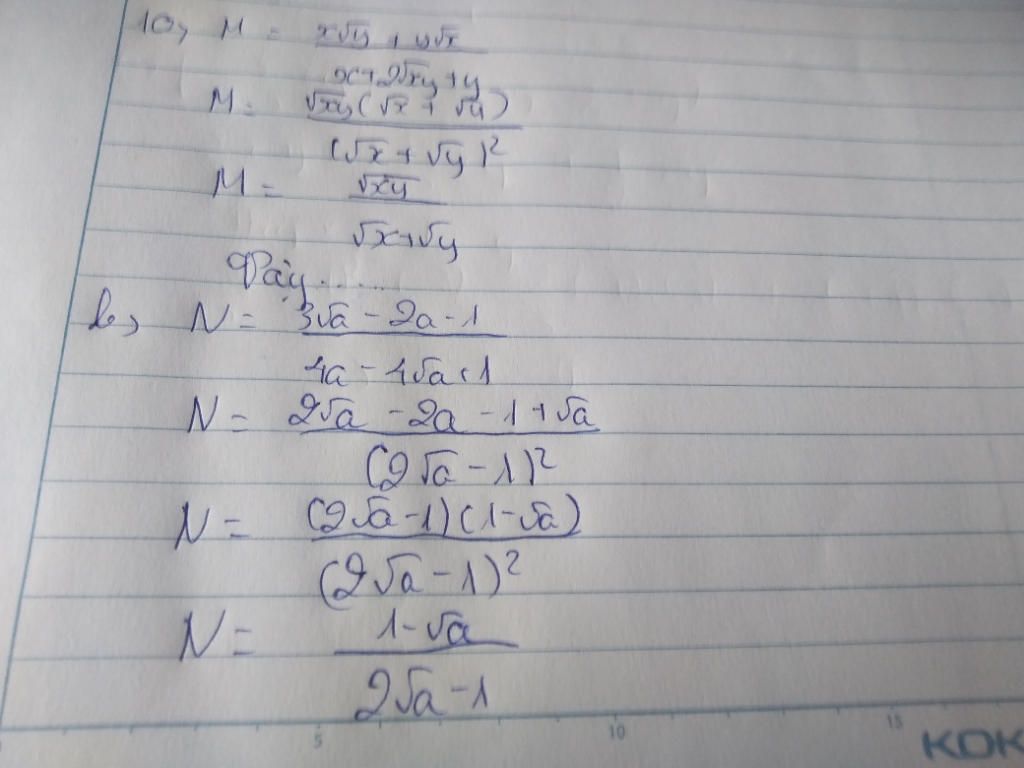 10, M = x√y + y√x
x+2√xy+y
M = √xy(√x + √y)
(√x+√y)²
M = √xy
√x+√y
Vậy......
b, N = 3√a - 2a - 1
4a - 4√a + 1
N = 2√a - 2a - 1 + √a
(2√a - 1)²
N = (2√a-1)(1-√a)
(2√a-1)²
N = 1-√a
2√a-1
5 10 15
KOK